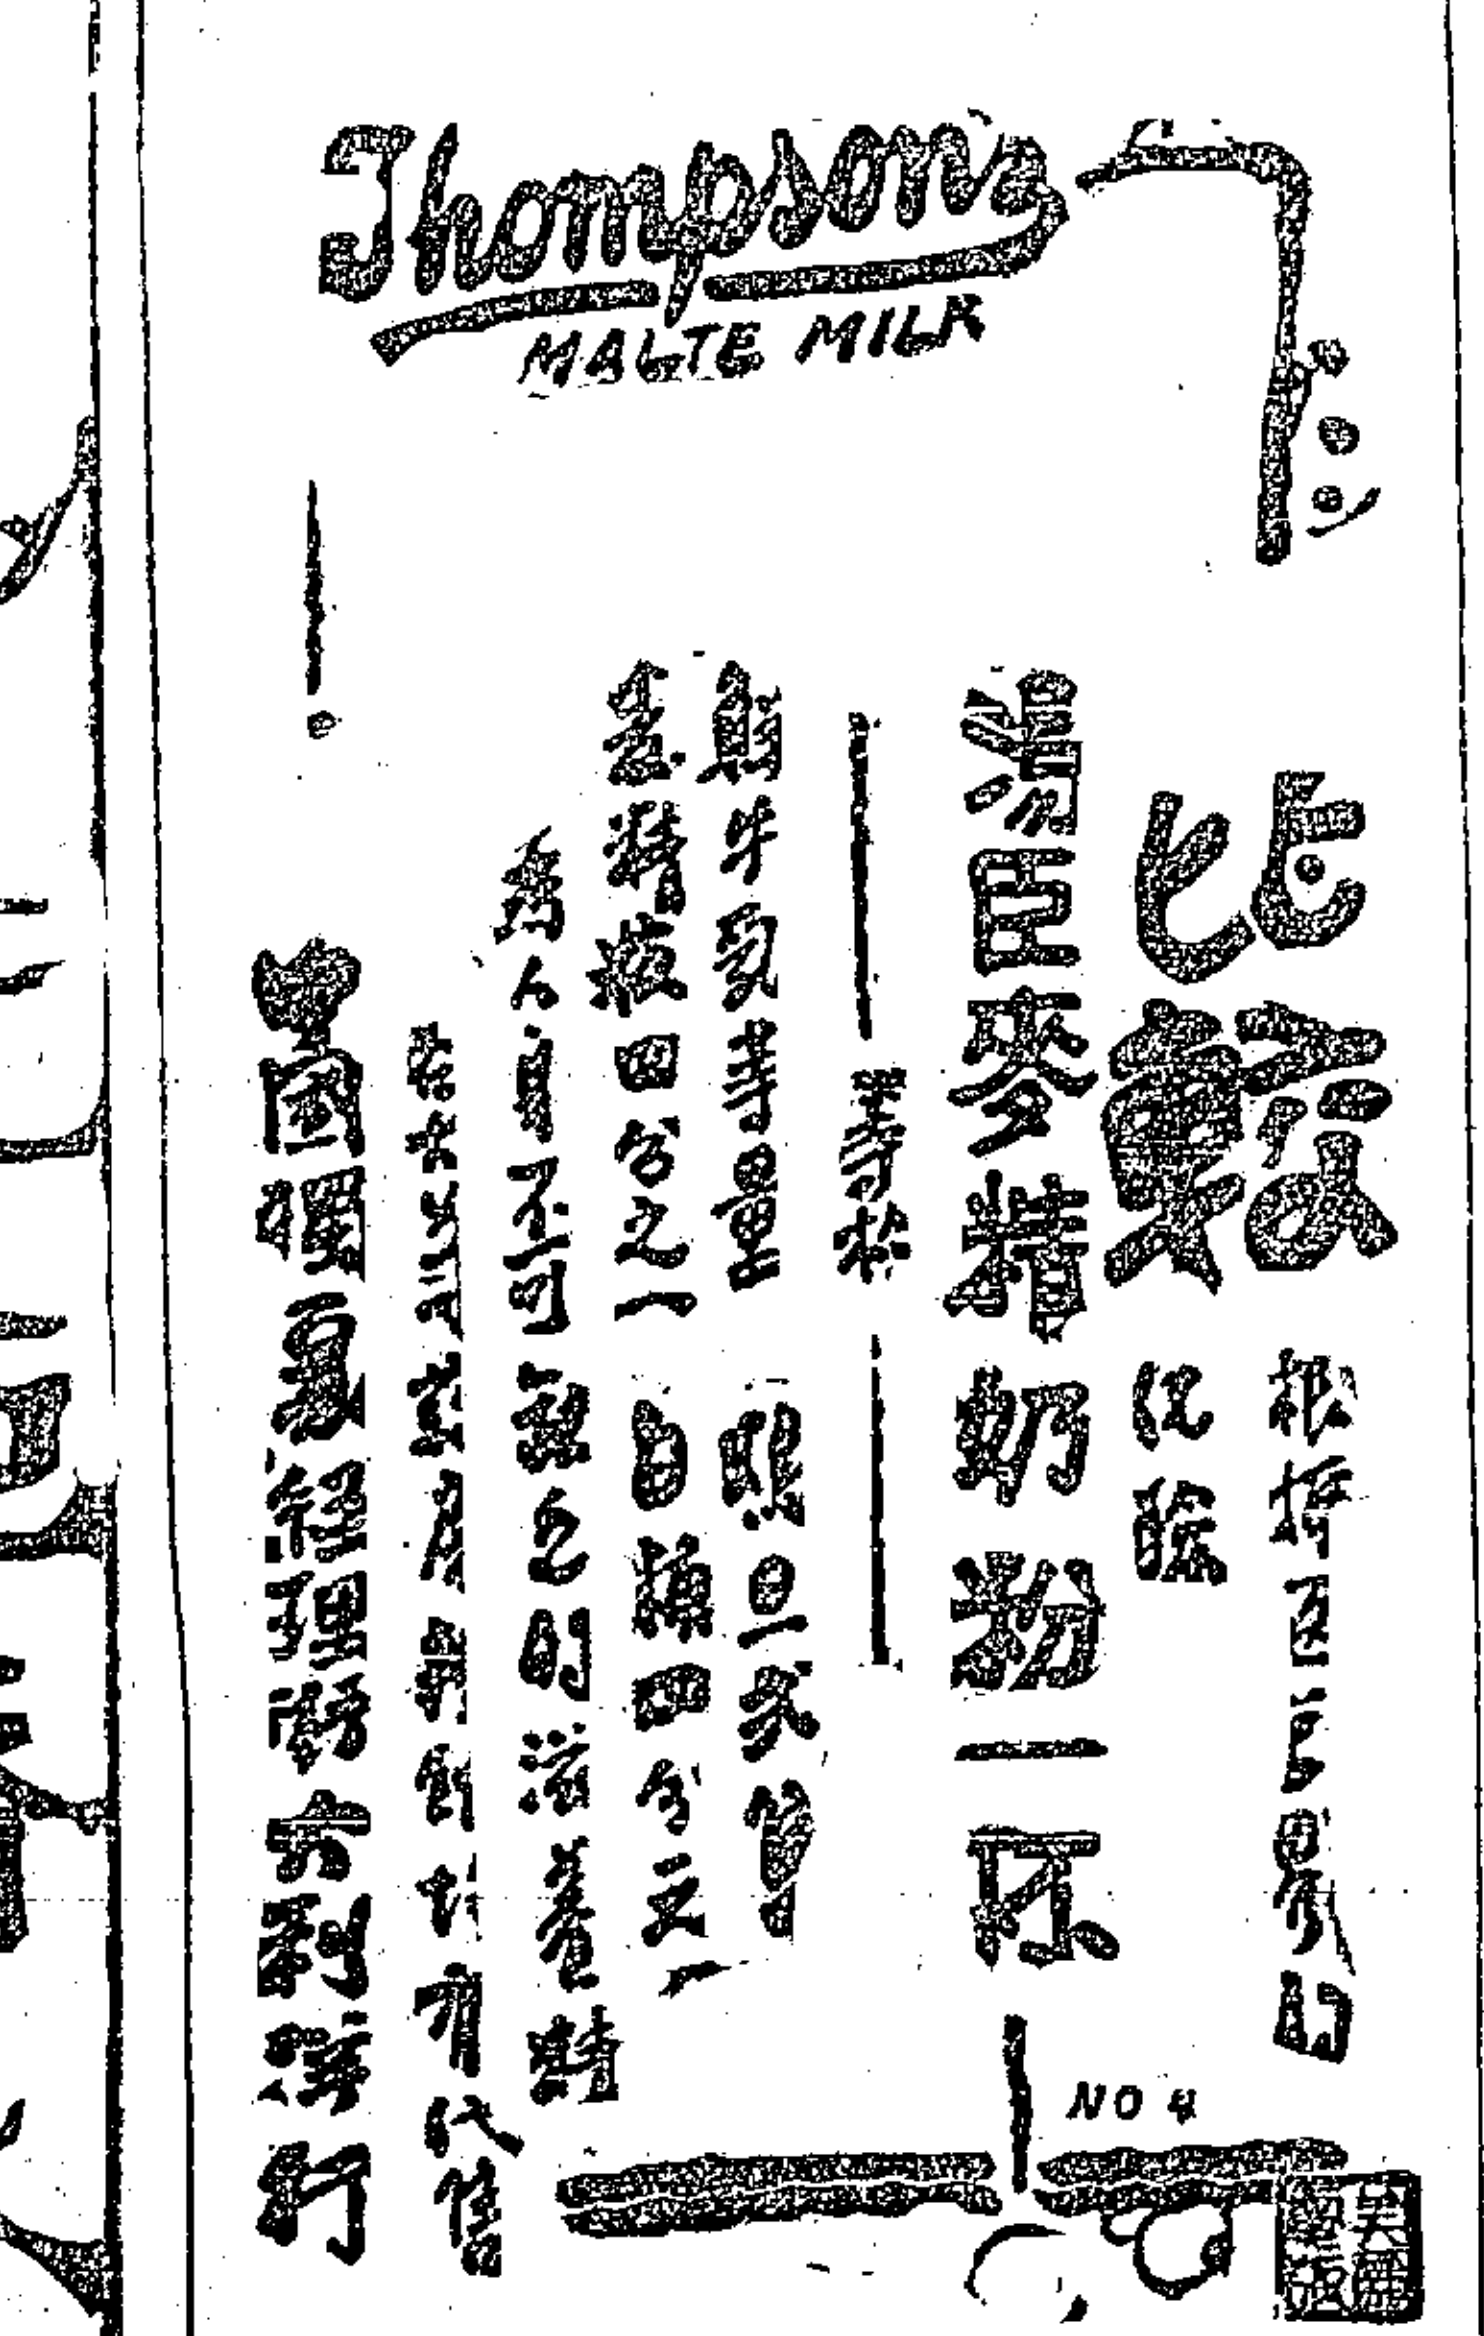 Thompson's
MALTE MILK
比較
根据医师界的
化驗
湯臣麥精奶粉一杯
等於
鮮牛奶等量 雞旦弍隻
麦精拔四分之一 白糖四分之一
為人身不可缺乏的滋養料
各大公司藥房
有代售
中國獨家經理榮大利洋行
NO 4